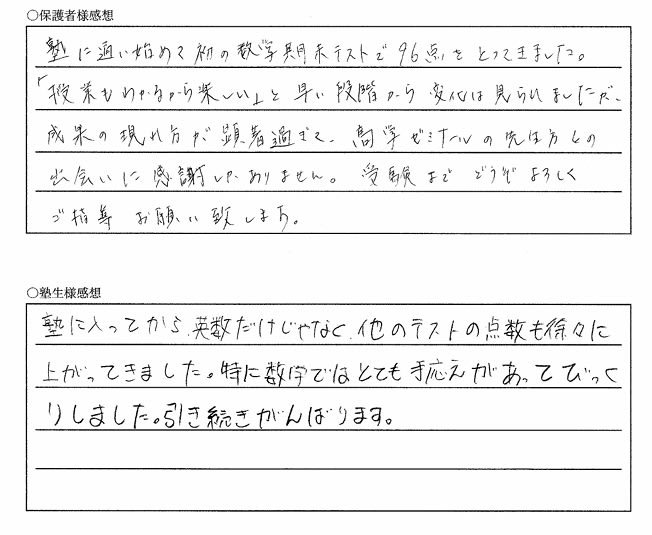 ○保護者様感想
塾に通い始めて初の数学期末テストで96点をとってきました。
「授業もわかるから楽しい」と早い段階から変化は見られましたが、
成果の現れ方が顕著過ぎて、高学ゼミナールの先生方との
出会いに感謝しかありません。受験までどうぞよろしく
ご指導お願い致します。
○塾生様感想
塾に入ってから、英数だけじゃなく、他のテストの点数も徐々に
上がってきました。特に数学ではとても手応えがあってびっく
りしました。引き続きがんばります。